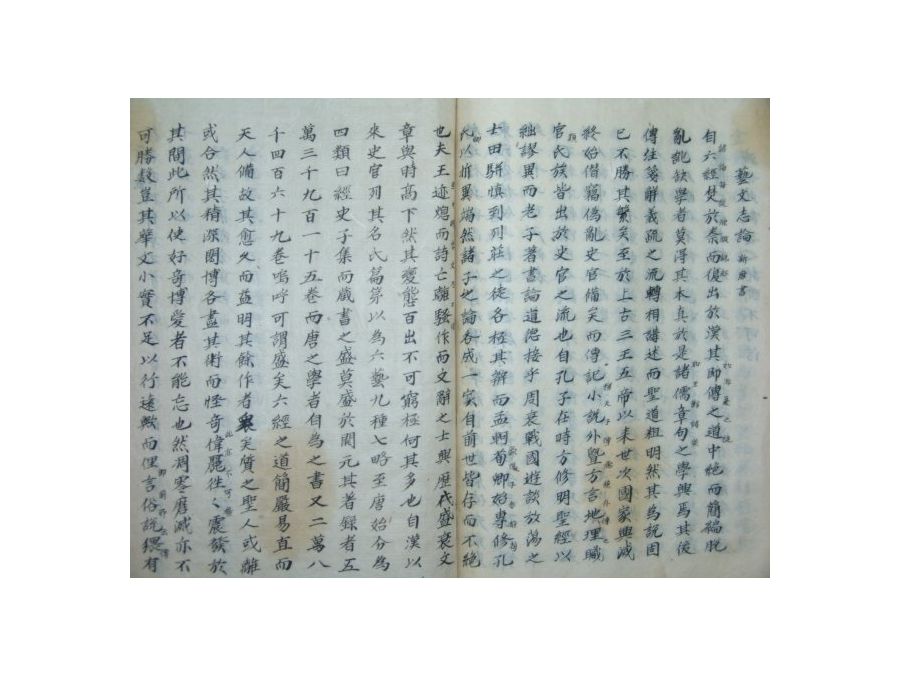 藝文志論 新唐書
自六經焚於秦而復出於漢其師傳之道中絶而簡編脫
亂訛缺學者莫得其本真於是諸儒章句之學興焉其後
傳注箋解義疏之流轉相講述而聖道粗明然其為說固
已不勝其繁矣至於上古三王五帝以來世次國家興滅
終始僭竊偽亂史官備矣而傳記小說外曁方言地理職
官氏族皆出於史官之流也自孔子在時方修明聖經以
絀謬異而老子著書論道德接乎周衰戰國遊談放蕩之
士田騈慎到列莊之徒各極其辯而孟軻荀卿始專修孔
氏以折異端然諸子之論各成一家自前世皆存而不絶
也夫王迹熄而詩亡離騷作而文辭之士興歷代盛衰文
章與時高下然其變態百出不可窮極何其多也自漢以
來史官列其名氏篇第以為六藝九種七略至唐始分為
四類曰經史子集而藏書之盛莫盛於開元其著錄者五
萬三千九百一十五卷而唐之學者自為之書又二萬八
千四百六十九卷嗚呼可謂盛矣六經之道簡嚴易直而
天人備故其愈久而益明其餘作者衆矣質之聖人或離
或合然其精深閎博各盡其術而怪奇偉麗往〻震發於
其間此所以使好奇博愛者不能忘也然凋零磨滅亦不
可勝數豈其華文小實不足以行遠歟而俚言俗說猥有